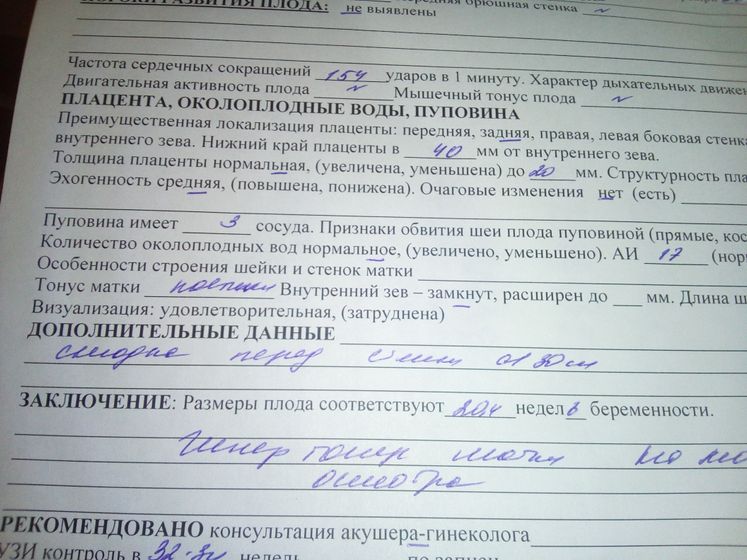 ПОРОКИ РАЗВИТИЯ ПЛОДА: не выявлены
передняя брюшная стенка N
Частота сердечных сокращений 154 ударов в 1 минуту. Характер дыхательных движен
Двигательная активность плода N Мышечный тонус плода N
ПЛАЦЕНТА, ОКОЛОПЛОДНЫЕ ВОДЫ, ПУПОВИНА
Преимущественная локализация плаценты: передняя, задняя, правая, левая боковая стенка
внутреннего зева. Нижний край плаценты в 40 мм от внутреннего зева.
Толщина плаценты нормальная, (увеличена, уменьшена) до 20 мм. Структурность пла
Эхогенность средняя, (повышена, понижена). Очаговые изменения нет (есть)
Пуповина имеет 3 сосуда. Признаки обвития шеи плода пуповиной (прямые, кос
Количество околоплодных вод нормальное, (увеличено, уменьшено). АИ 17 (нор
Особенности строения шейки и стенок матки
Тонус матки Внутренний зев – замкнут, расширен до мм. Длина ш
Визуализация: удовлетворительная, (затруднена)
ДОПОЛНИТЕЛЬНЫЕ ДАННЫЕ
перед
ЗАКЛЮЧЕНИЕ: Размеры плода соответствуют 20,4 недел беременности.
Гипер тонус матки на мо
осмотра
РЕКОМЕНДОВАНО консультация акушера-гинеколога
УЗИ контроль в 32-34 недель по запис